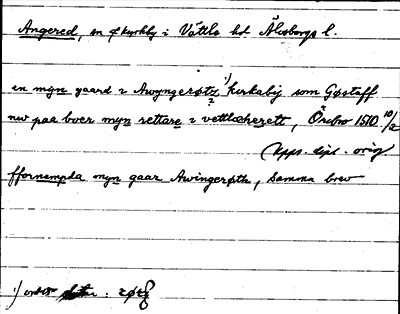 Angered, en fkyrkby i Vättle hd Älvsborgs l.
en myn gaard i Awyngerøtz ¹⁾ kirkabij som Gøstaff
nw paa boer myn rettare i vettlæherett, Örebro 1510 10/2
Upps. dipl. orig
ffornempda myn gaar Awingerøth, Samma brev
¹⁾ under : røtz